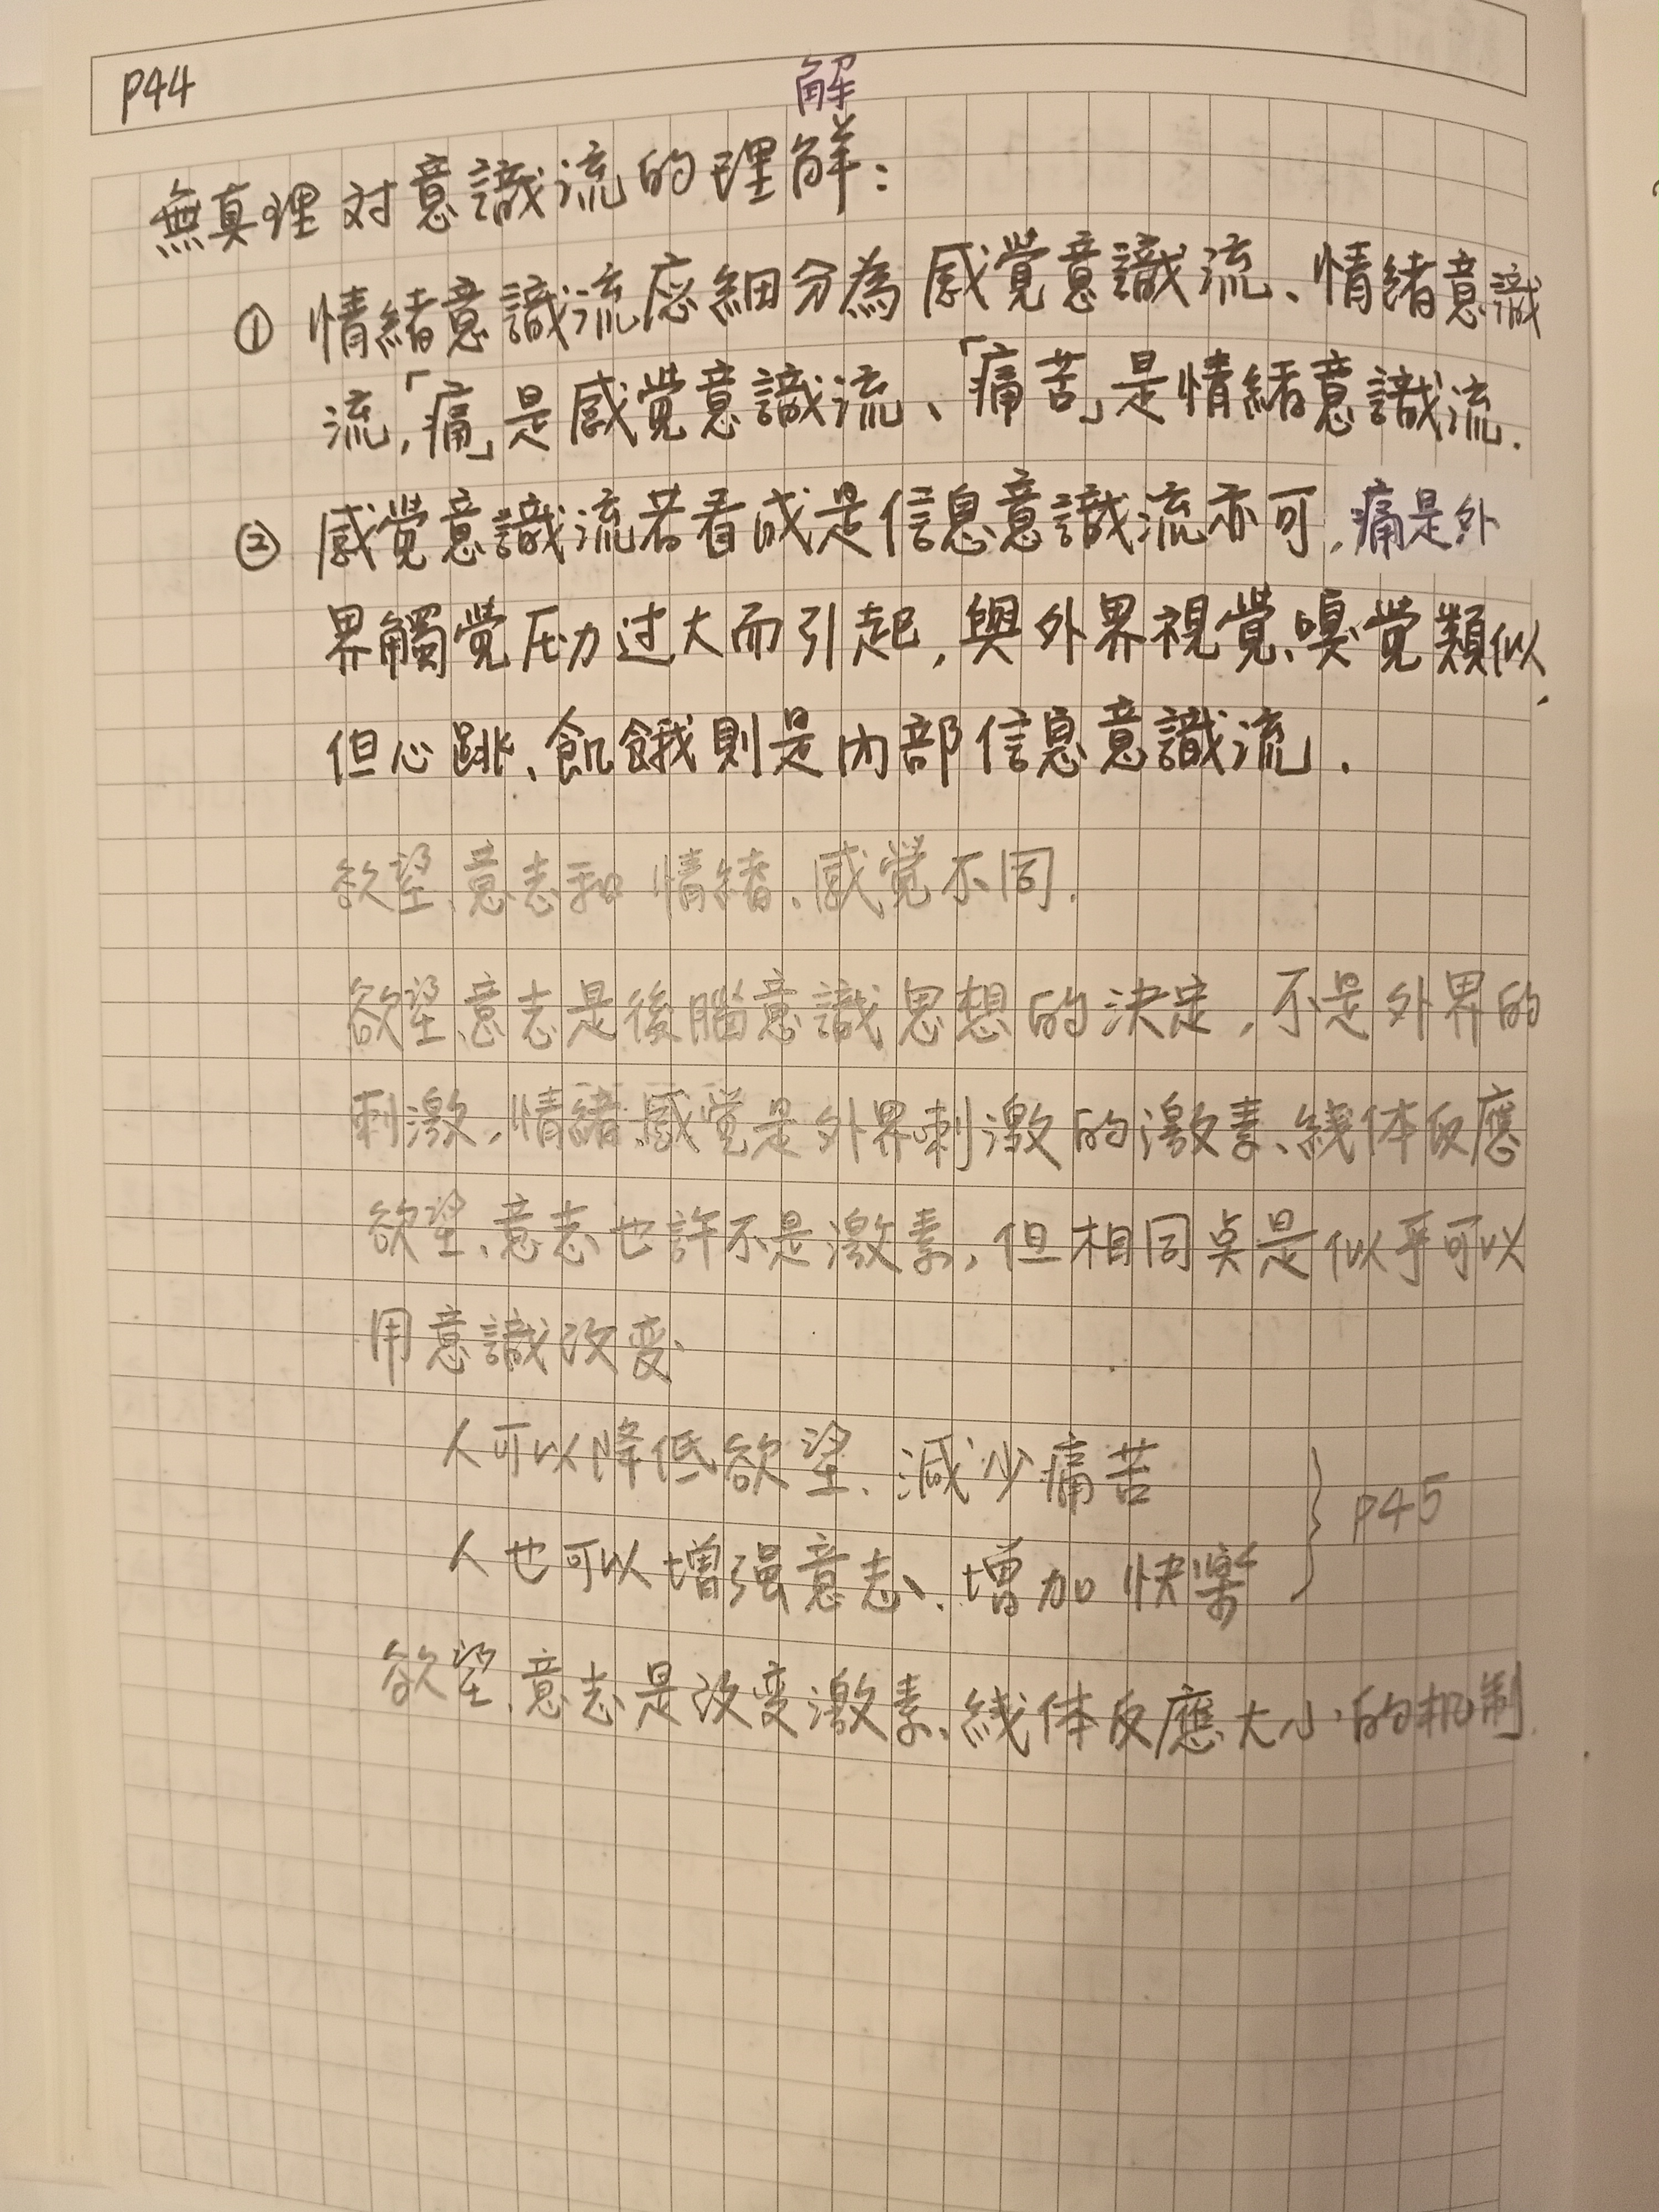 P44
解
無真理对意識流的理解：
① 情緒意識流应細分為感覚意識流、情緒意識
流，「痛」是感覚意識流、「痛苦」是情緒意識流.
② 感覚意識流若看成是信息意識流亦可，痛是外
界觸覚压力过大而引起，與外界視覚、嗅覚類似，
但心跳、飢餓則是内部信息意識流.
欲望、意志和情緒、感覚不同.
欲望、意志是後腦意識思想的決定，不是外界的
刺激，情緒、感覚是外界刺激的激素、綫体反應
欲望、意志也許不是激素，但相同点是似乎可以
用意識改变、
人可以降低欲望、減少痛苦
人也可以增强意志、增加快楽 } P45
欲望、意志是改变激素、綫体反應大小的机制.